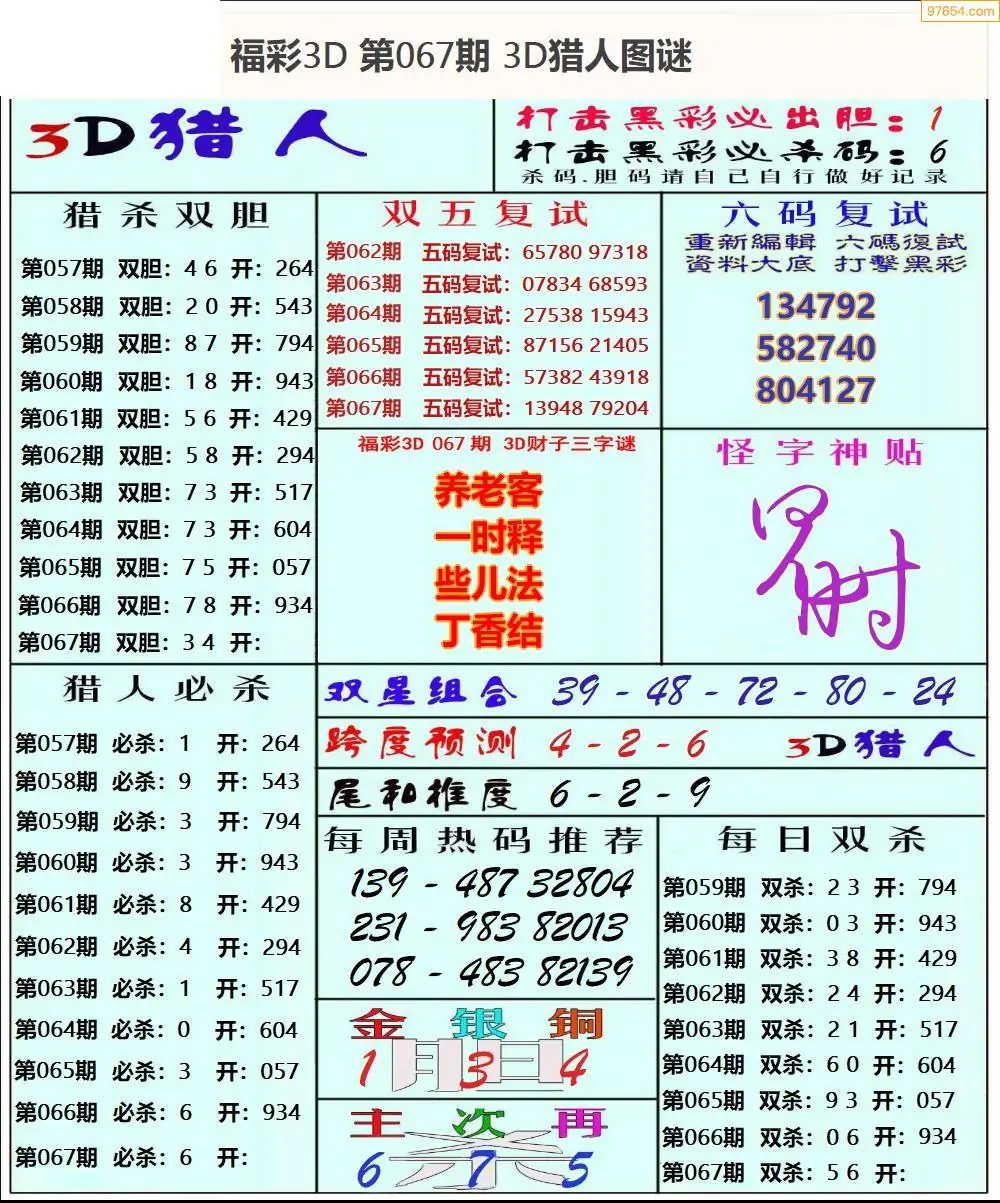 97654.com
福彩3D 第067期 3D猎人图谜
3D猎人
打击黑彩必出胆：1
打击黑彩必杀码：6
杀码.胆码请自己自行做好记录
猎杀双胆
第057期 双胆：4 6 开：264
第058期 双胆：2 0 开：543
第059期 双胆：8 7 开：794
第060期 双胆：1 8 开：943
第061期 双胆：5 6 开：429
第062期 双胆：5 8 开：294
第063期 双胆：7 3 开：517
第064期 双胆：7 3 开：604
第065期 双胆：7 5 开：057
第066期 双胆：7 8 开：934
第067期 双胆：3 4 开：
双五复试
第062期 五码复试：65780 97318
第063期 五码复试：07834 68593
第064期 五码复试：27538 15943
第065期 五码复试：87156 21405
第066期 五码复试：57382 43918
第067期 五码复试：13948 79204
六码复试
重新編輯 六碼復試
資料大底 打擊黑彩
134792
582740
804127
福彩3D 067期 3D财子三字谜
养老客
一时释
些儿法
丁香结
怪字神贴
猎人必杀
第057期 必杀：1 开：264
第058期 必杀：9 开：543
第059期 必杀：3 开：794
第060期 必杀：3 开：943
第061期 必杀：8 开：429
第062期 必杀：4 开：294
第063期 必杀：1 开：517
第064期 必杀：0 开：604
第065期 必杀：3 开：057
第066期 必杀：6 开：934
第067期 必杀：6 开：
双星组合 39 - 48 - 72 - 80 - 24
跨度预测 4 - 2 - 6 3D猎人
尾和推度 6 - 2 - 9
每周热码推荐
139 - 487 32804
231 - 983 82013
078 - 483 82139
金 银 铜
1 3 4
胆
主 次 再
6 7 5
杀
每日双杀
第059期 双杀：2 3 开：794
第060期 双杀：0 3 开：943
第061期 双杀：3 8 开：429
第062期 双杀：2 4 开：294
第063期 双杀：2 1 开：517
第064期 双杀：6 0 开：604
第065期 双杀：9 3 开：057
第066期 双杀：0 6 开：934
第067期 双杀：5 6 开：